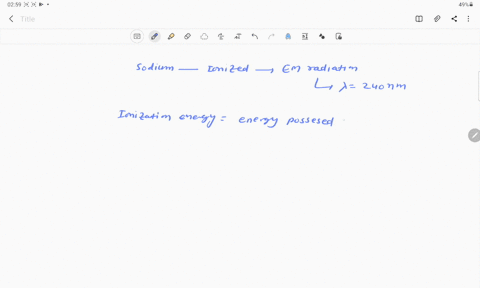 02:59
49%
Title
Sodium — Ionized → EM radiation
↳ λ = 240 nm
Ionization energy = energy possesed